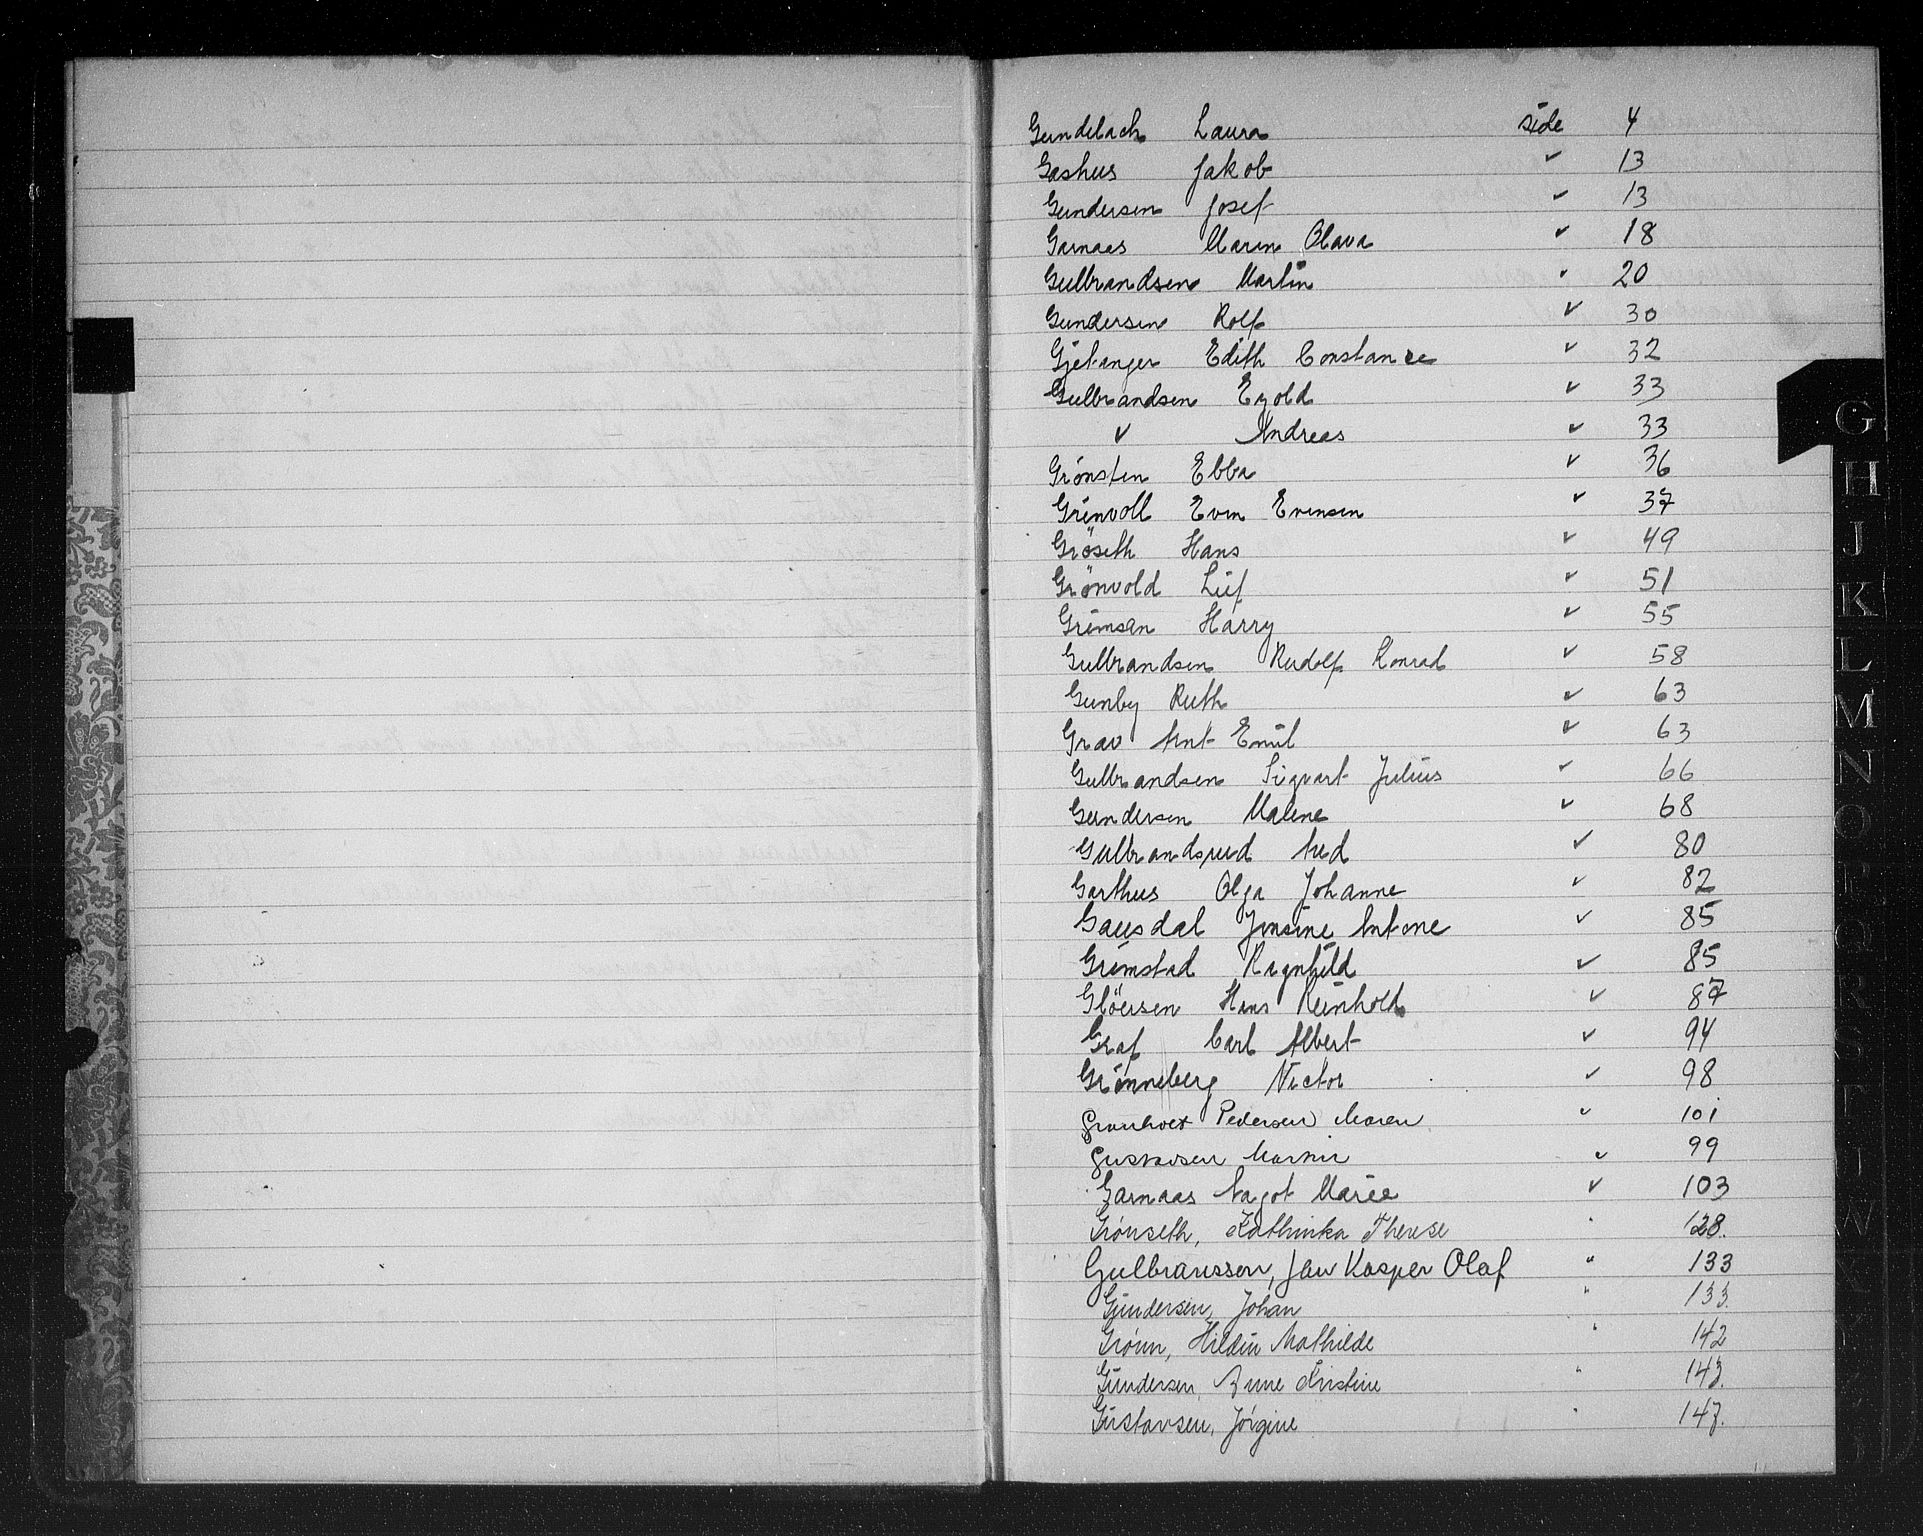 Gundelach Laura side 4
Gashus Jakob " 13
Gundersen Josef " 13
Garnaas Maren Olava " 18
Gulbrandsen Martin " 20
Gundersen Rolf " 30
Gjetanger Edith Constance " 32
Gulbrandsen Egold " 33
" Andreas " 33
Grönsten Ebba " 36
Grinvoll Even Evensen " 37
Gröseth Hans " 49
Grönvold Leif " 51
Grimsen Harry " 55
Gulbrandsen Rudolf Konrad " 58
Gunby Ruth " 63
Grav Arnt Emil " 63
Gulbrandsen Sigvart Julius " 66
Gundersen Malene " 68
Gulbrandsrud Aud " 80
Garthus Olga Johanne " 82
Gausdal Jensine Antone " 85
Grimstad Ragnhild " 85
Glöersen Hans Reinholdt " 87
Graf Carl Albert " 94
Grönneberg Victor " 98
Pedersen Maren " 101
Gustavsen Martin " 99
Garnaas Aagot Marie " 103
Grönseth, Kathinka Therese " 128.
Gulbranssen, Jan Kasper Olaf " 133
Gundersen, Johan " 133.
Grönn, Hildin Mathilde " 142
Gundersen, Anne Kristine " 143.
Gustavsen, Jörgine " 147.
G
H
J
K
L
M
N
O
P
Q
R
S
T